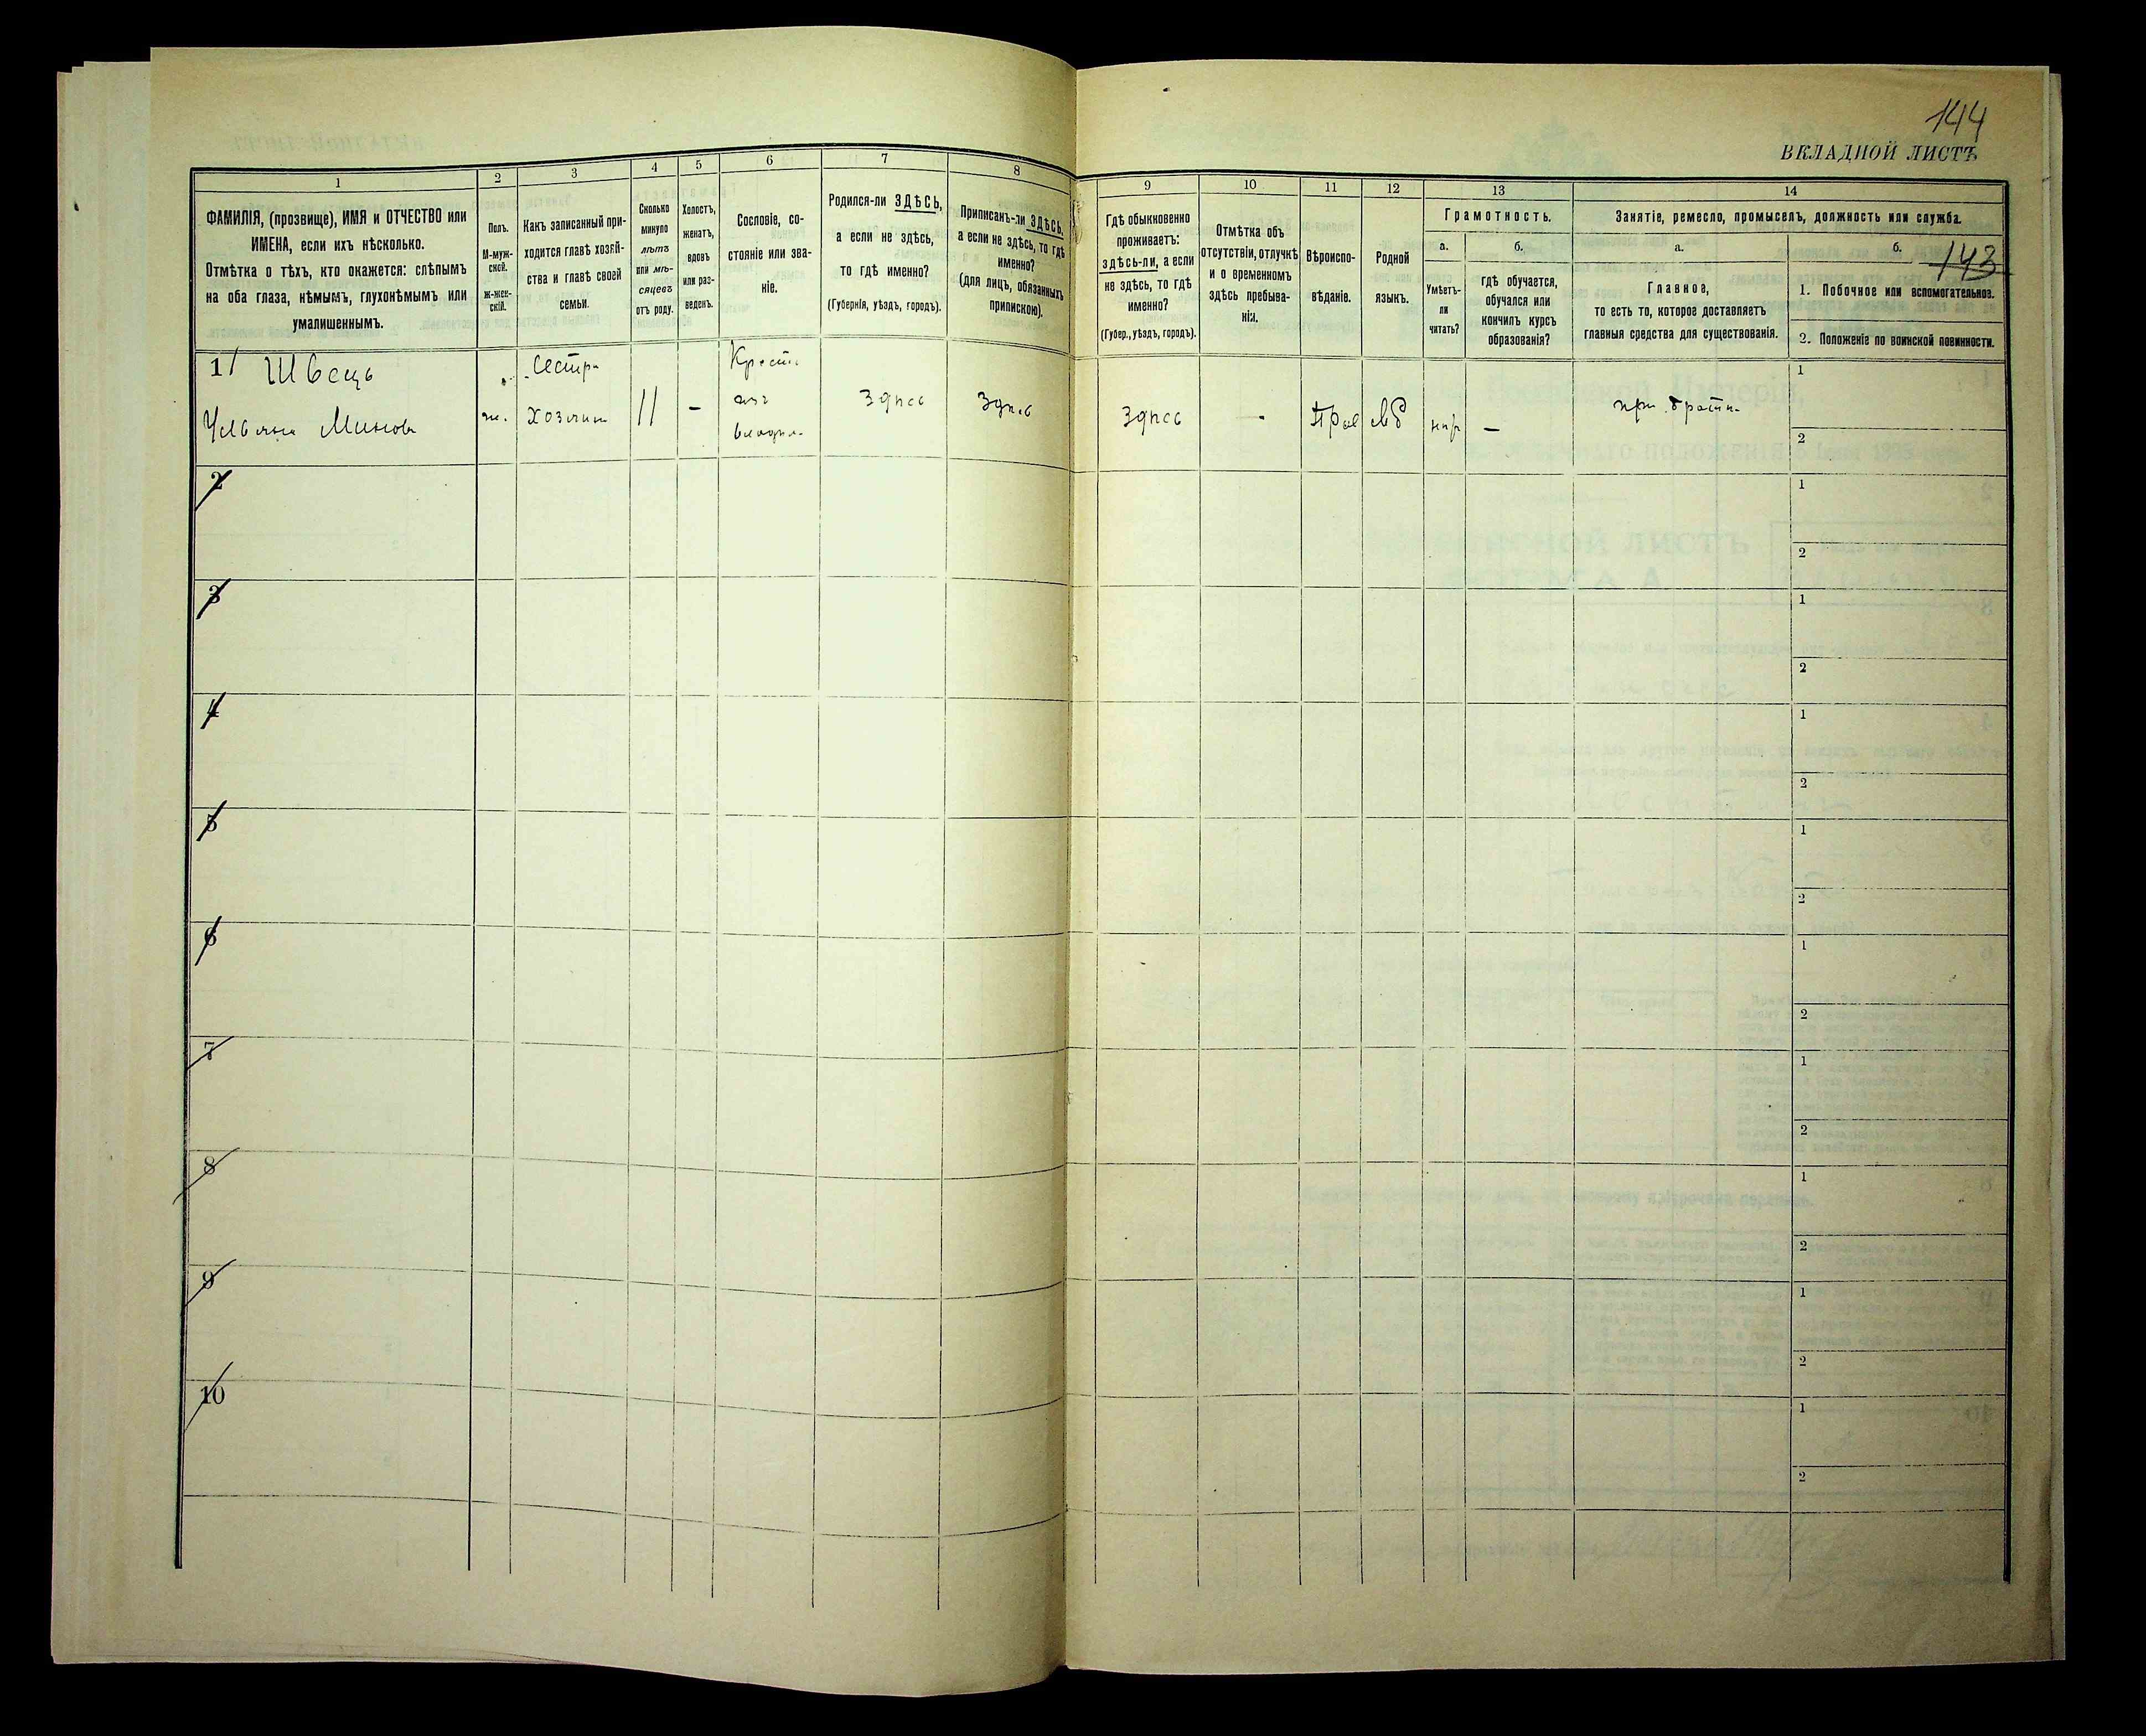 144
ВКЛАДНОЙ ЛИСТЪ
1
2
3
4
5
6
7
8
9
10
11
12
13
14
ФАМИЛІЯ, (прозвище), ИМЯ и ОТЧЕСТВО или
ИМЕНА, если ихъ нѣсколько.
Отмѣтка о тѣхъ, кто окажется: слѣпымъ
на оба глаза, нѣмымъ, глухонѣмымъ или
умалишеннымъ.
Полъ.
М-муж-
ской.
ж-жен-
скій.
Какъ записанный при-
ходится главѣ хозяй-
ства и главѣ своей
семьи.
Сколько
минуло
лѣтъ
или мѣ-
сяцевъ
отъ роду.
Холостъ,
женатъ,
вдовъ
или раз-
веденъ.
Сословіе, со-
стояніе или зва-
ніе.
Родился-ли ЗДѢСЬ,
а если не здѣсь,
то гдѣ именно?
(Губернія, уѣздъ, городъ).
Приписанъ-ли ЗДѢСЬ,
а если не здѣсь, то гдѣ
именно?
(для лицъ, обязанныхъ
припискою).
Гдѣ обыкновенно
проживаетъ:
здѣсь-ли, а если
не здѣсь, то гдѣ
именно?
(Губер., уѣздъ, городъ).
Отмѣтка объ
отсутствіи, отлучкѣ
и о временномъ
здѣсь пребыва-
ніи.
Вѣроиспо-
вѣданіе.
Родной
языкъ.
Грамотность.
а.
б.
Умѣетъ-
ли
читать?
гдѣ обучается,
обучался или
кончилъ курсъ
образованія?
Занятіе, ремесло, промыселъ, должность или служба.
а.
б.
143
Главное,
то есть то, которое доставляетъ
главныя средства для существованія.
1. Побочное или вспомогательное.
2. Положеніе по воинской повинности.
1
Швець
Ульяна Минова
ж.
Сестра
хозяина
11
-
Крест.
здѣсь
здѣсь
здѣсь
-
Прав
нѣт
-
при брати
1
2
2
1
2
3
1
2
4
1
2
5
1
2
6
1
2
7
1
2
8
1
2
9
1
2
10
1
2